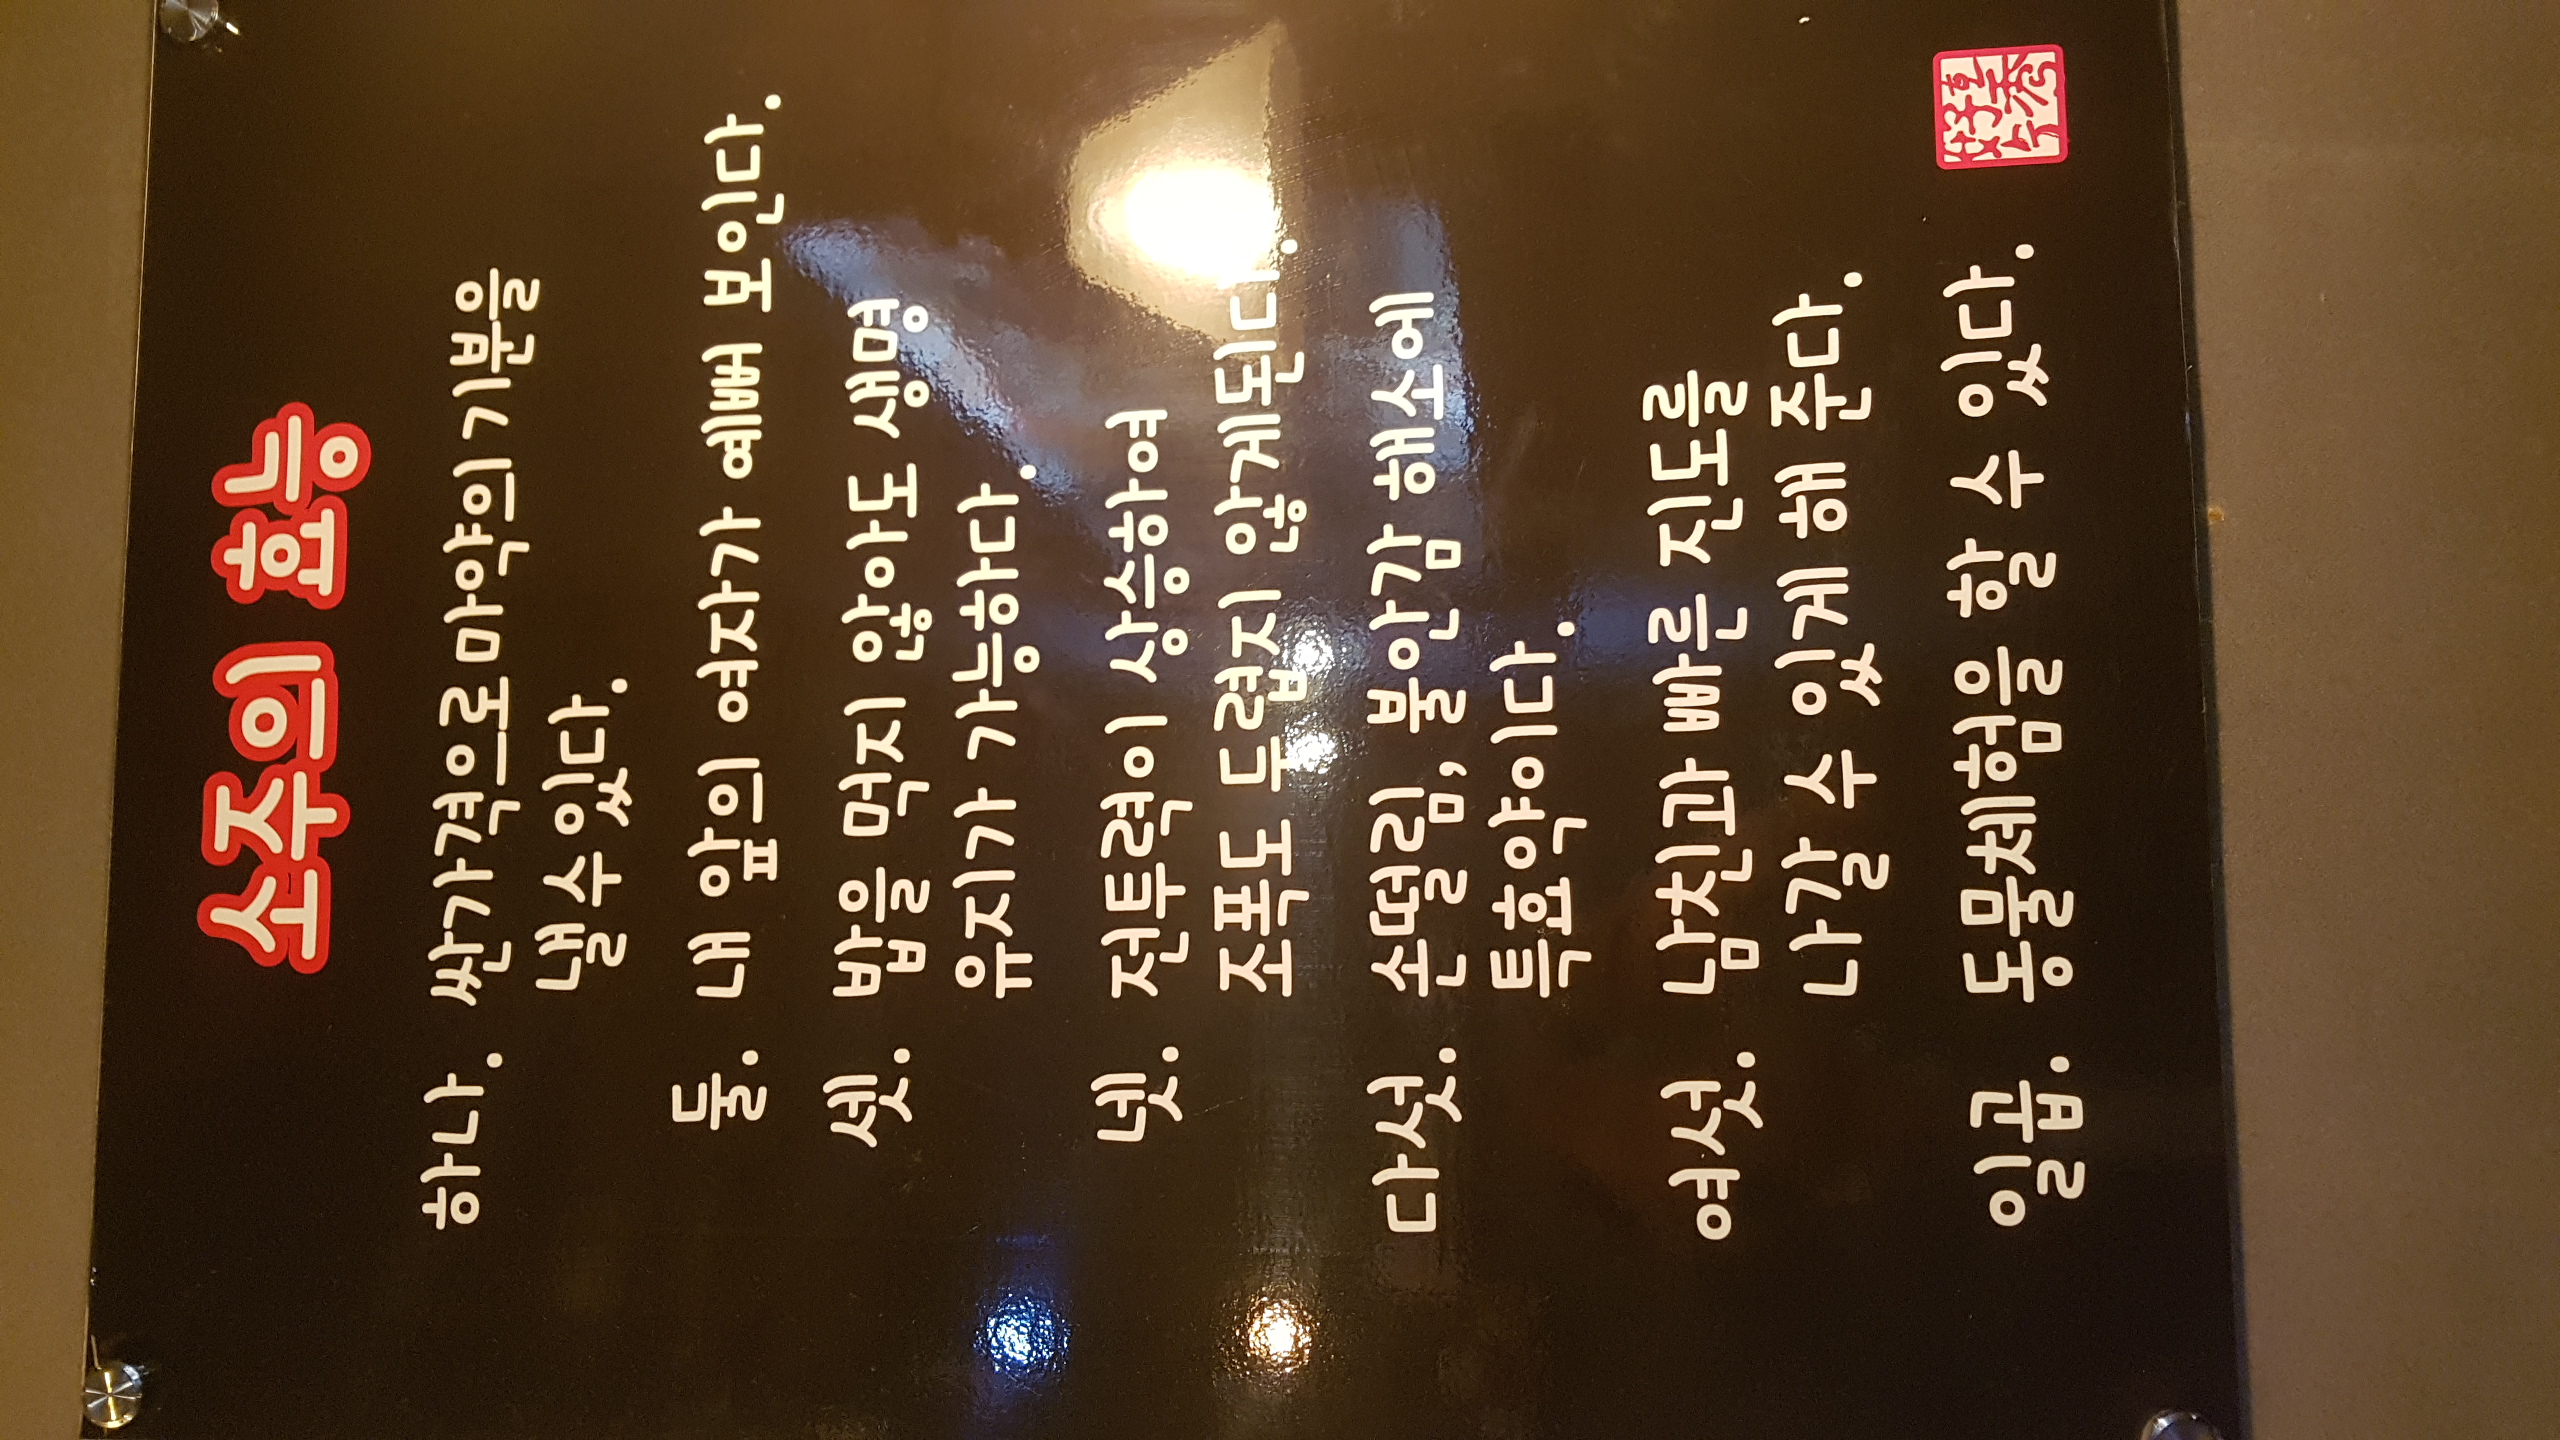 소주의 효능
하나. 싼가격으로마약의기분을
낼수있다.
둘. 내 앞의 여자가 예뻐 보인다.
셋. 밥을 먹지 않아도 생명
유지가 가능하다.
넷. 전투력이 상승하여
조폭도 두렵지 않게된다.
다섯. 손떨림, 불안감 해소에
특효약이다.
여섯. 남친과 빠른 진도를
나갈 수 있게 해 준다.
일곱. 동물체험을 할 수 있다.